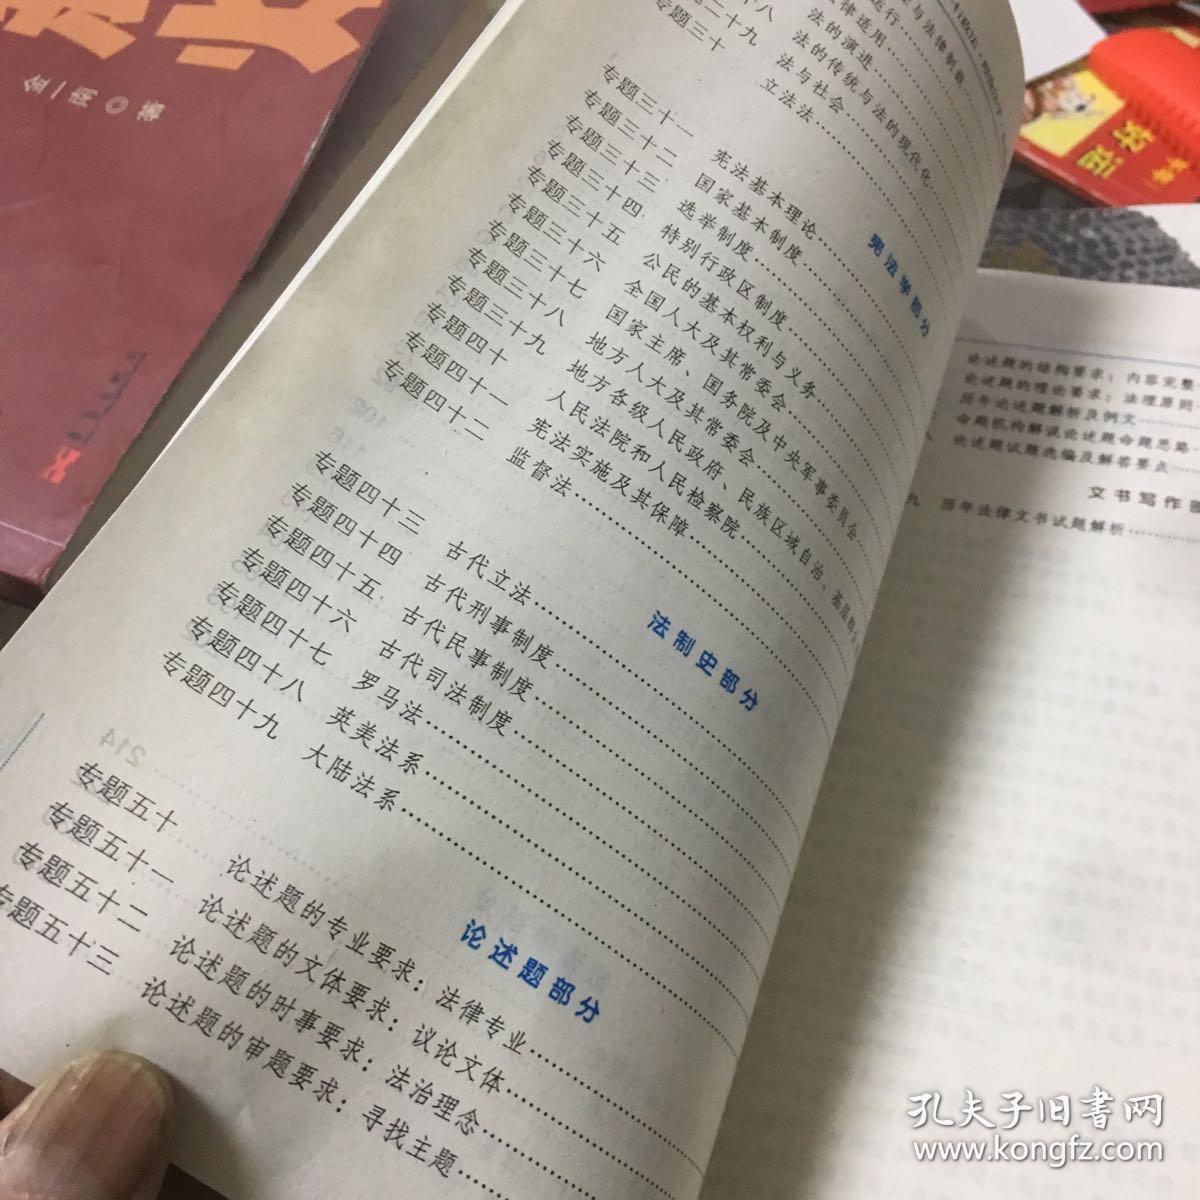 金一南◎著
与法律制裁
运行
律适用
法的演进
十八 法的传统与法的现代化
二十九 法与社会
专题三十 立法法
宪法学部分
专题三十一 宪法基本理论
专题三十二 国家基本制度
专题三十三 选举制度
专题三十四 特别行政区制度
专题三十五 公民的基本权利与义务
专题三十六 全国人大及其常委会
专题三十七 国家主席、国务院及中央军事委员会
专题三十八 地方人大及其常委会
专题三十九 地方各级人民政府、民族区域自治、基层群
专题四十 人民法院和人民检察院
专题四十一 宪法实施及其保障
专题四十二 监督法
法制史部分
专题四十三 古代立法
专题四十四 古代刑事制度
专题四十五 古代民事制度
专题四十六 古代司法制度
专题四十七 罗马法
专题四十八 英美法系
专题四十九 大陆法系
论述题部分
专题五十 论述题的专业要求：法律专业
专题五十一 论述题的文体要求：议论文体
专题五十二 论述题的时事要求：法治理念
专题五十三 论述题的审题要求：寻找主题
论述题的结构要求：内容完整
论述题的理论要求：法理原则
历年论述题解析及例文
命题机构解说论述题命题思路
八 论述题试题选编及解答要点
文书写作
九 历年法律文书试题解析
孔夫子旧书网
www.kongfz.com